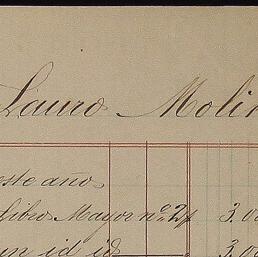 Lauro Molin
este año
Libro Mayor nº 2, 3.00
un id id 3.00